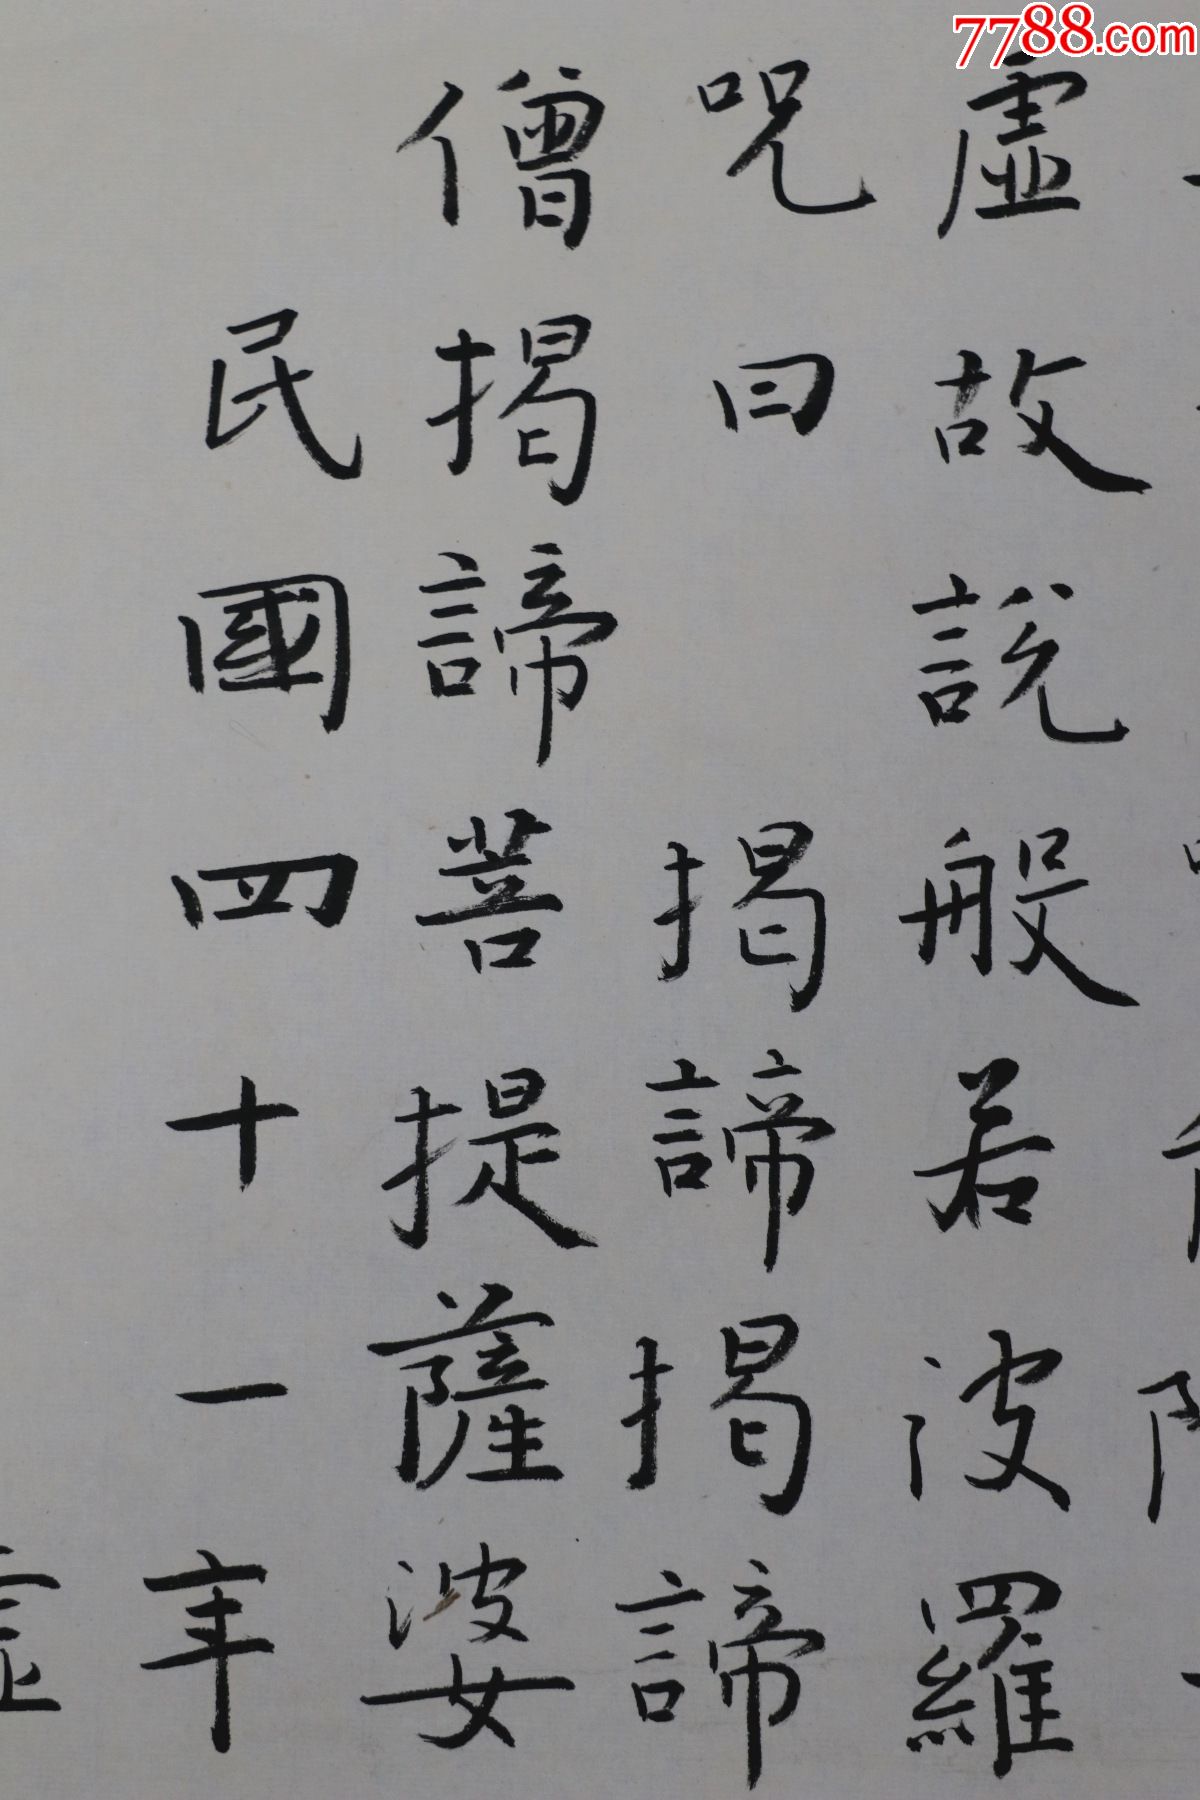 虛故說般若波羅
呪曰 揭諦揭諦
僧揭諦菩提薩婆
民國四十一年
7788.com